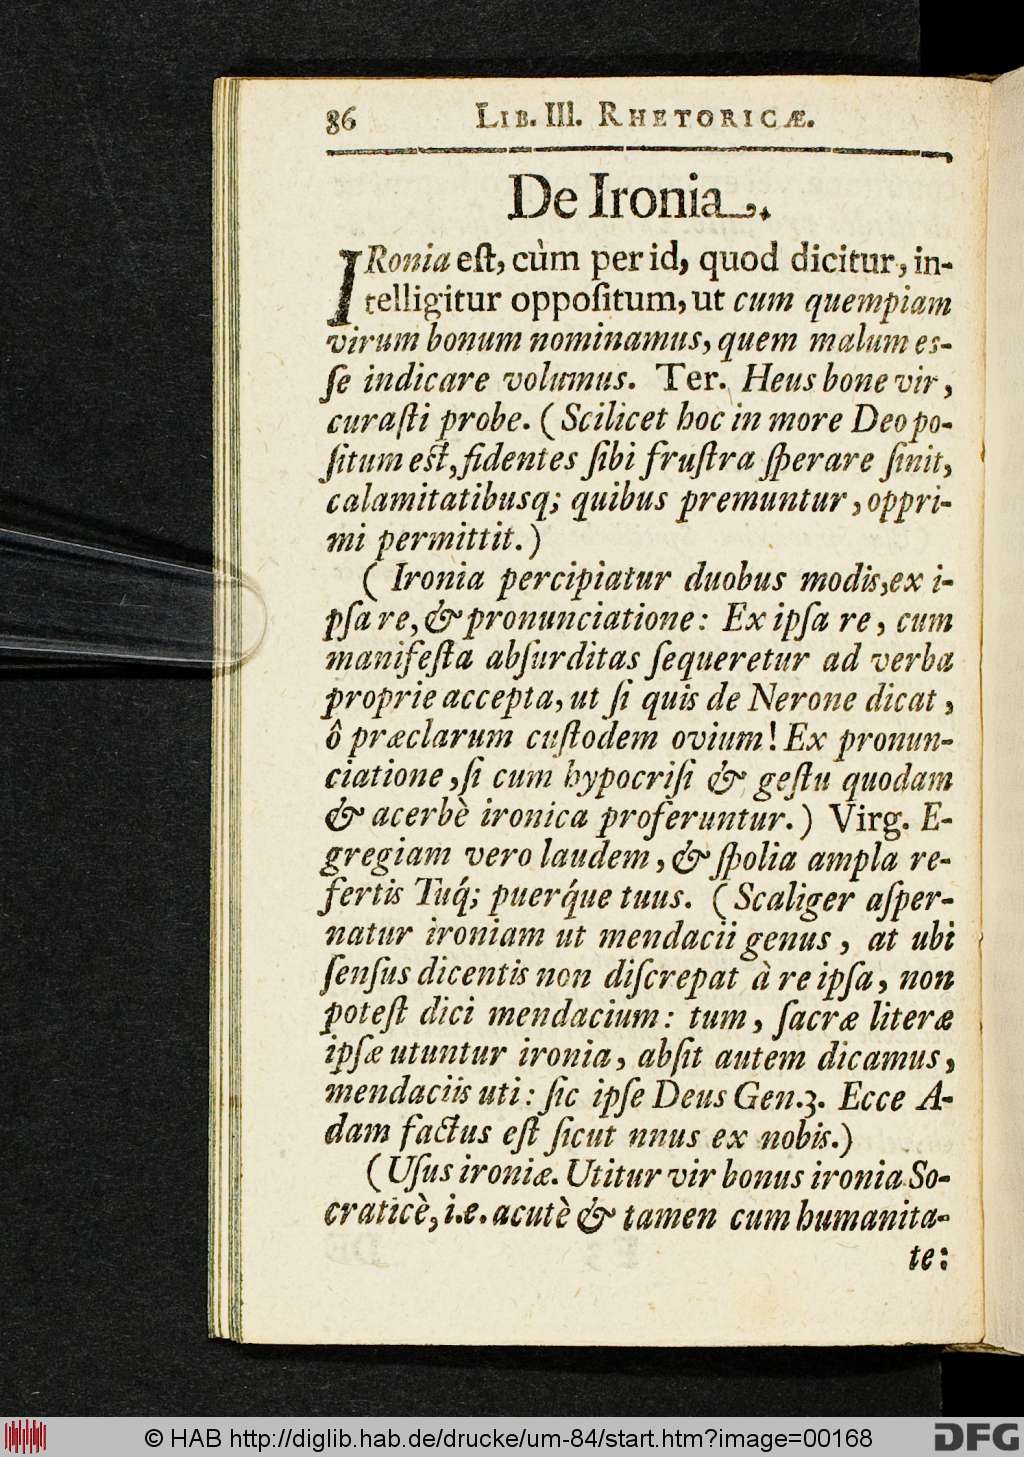 86 LIB. III. RHETORICÆ.
De Ironia.
IRonia eſt, cùm per id, quod dicitur, in-
telligitur oppoſitum, ut cum quempiam
virum bonum nominamus, quem malum eſ-
ſe indicare volumus. Ter. Heus bone vir,
curaſti probe. (Scilicet hoc in more Deo po-
ſitum eſt, fidentes ſibi fruſtra ſperare ſinit,
calamitatibusq; quibus premuntur, oppri-
mi permittit.)
( Ironia percipiatur duobus modis, ex i-
pſa re, & pronunciatione: Ex ipſa re, cum
manifeſta abſurditas ſequeretur ad verba
proprie accepta, ut ſi quis de Nerone dicat,
ô præclarum cuſtodem ovium! Ex pronun-
ciatione, ſi cum hypocriſi & geſtu quodam
& acerbè ironica proferuntur.) Virg. E-
gregiam vero laudem, & ſpolia ampla re-
fertis Tuq́; puerq́ue tuus. (Scaliger aſper-
natur ironiam ut mendacii genus, at ubi
ſenſus dicentis non diſcrepat à re ipſa, non
poteſt dici mendacium: tum, ſacræ literæ
ipſæ utuntur ironia, abſit autem dicamus,
mendaciis uti: ſic ipſe Deus Gen.3. Ecce A-
dam factus eſt ſicut nnus ex nobis.)
(Uſus ironiæ. Utitur vir bonus ironia So-
craticè, i.e. acutè & tamen cum humanita-
te:
© HAB http://diglib.hab.de/drucke/um-84/start.htm?image=00168
DFG